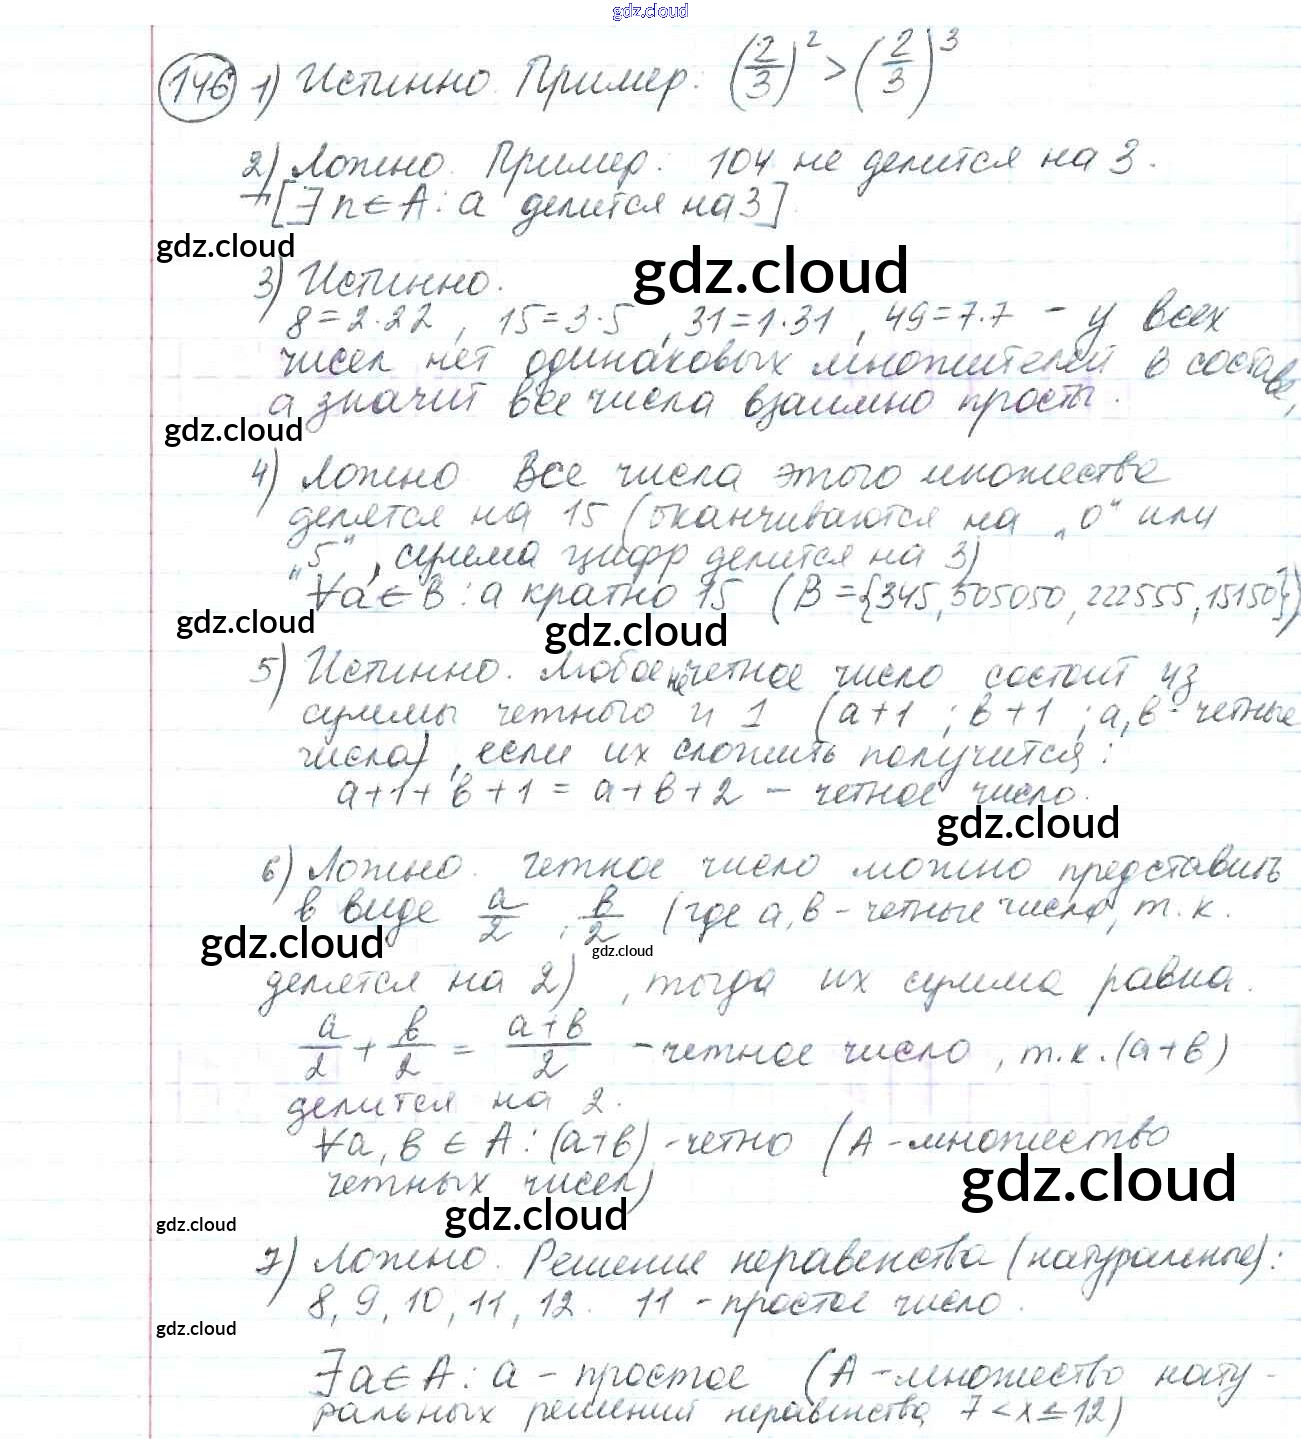 gdz.cloud
146 1) Истинно. Пример: (2/3)² > (2/3)³
2) Ложно. Пример: 104 не делится на 3.
[∃ n ∈ A: a делится на 3].
gdz.cloud
gdz.cloud
3) Истинно.
8 = 2·2 2, 15 = 3·5, 31 = 1·31, 49 = 7·7 – у всех
чисел нет одинаковых множителей в составе,
а значит все числа взаимно просты.
gdz.cloud
4) Ложно. Все числа этого множества
делятся на 15 (оканчиваются на „0“ или
„5“, сумма цифр делится на 3)
∀a ∈ B: a кратно 15 (B = {345, 505050, 222555, 15150})
gdz.cloud gdz.cloud
5) Истинно. Любое нечетное число состоит из
суммы четного и 1 (a+1; в+1; a, в - четные
числа), если их сложить получится:
a+1+в+1 = a+в+2 – четное число.
gdz.cloud
6) Ложно. Четное число можно представить
в виде a/2, в/2 (где а, в – четные числа, т.к.
gdz.cloud gdz.cloud
делятся на 2), тогда их сумма равна.
a/2 + в/2 = a+в/2 – четное число, т.к. (a+в)
делится на 2.
∀a, в ∈ A: (a+в) - четно (A - множество
четных чисел)
gdz.cloud
gdz.cloud gdz.cloud
7) Ложно. Решение неравенства (натуральные):
8, 9, 10, 11, 12. 11 - простое число.
gdz.cloud
∃ a ∈ A: a – простое (A – множество нату-
ральных решений неравенства 7 < x ≤ 12)